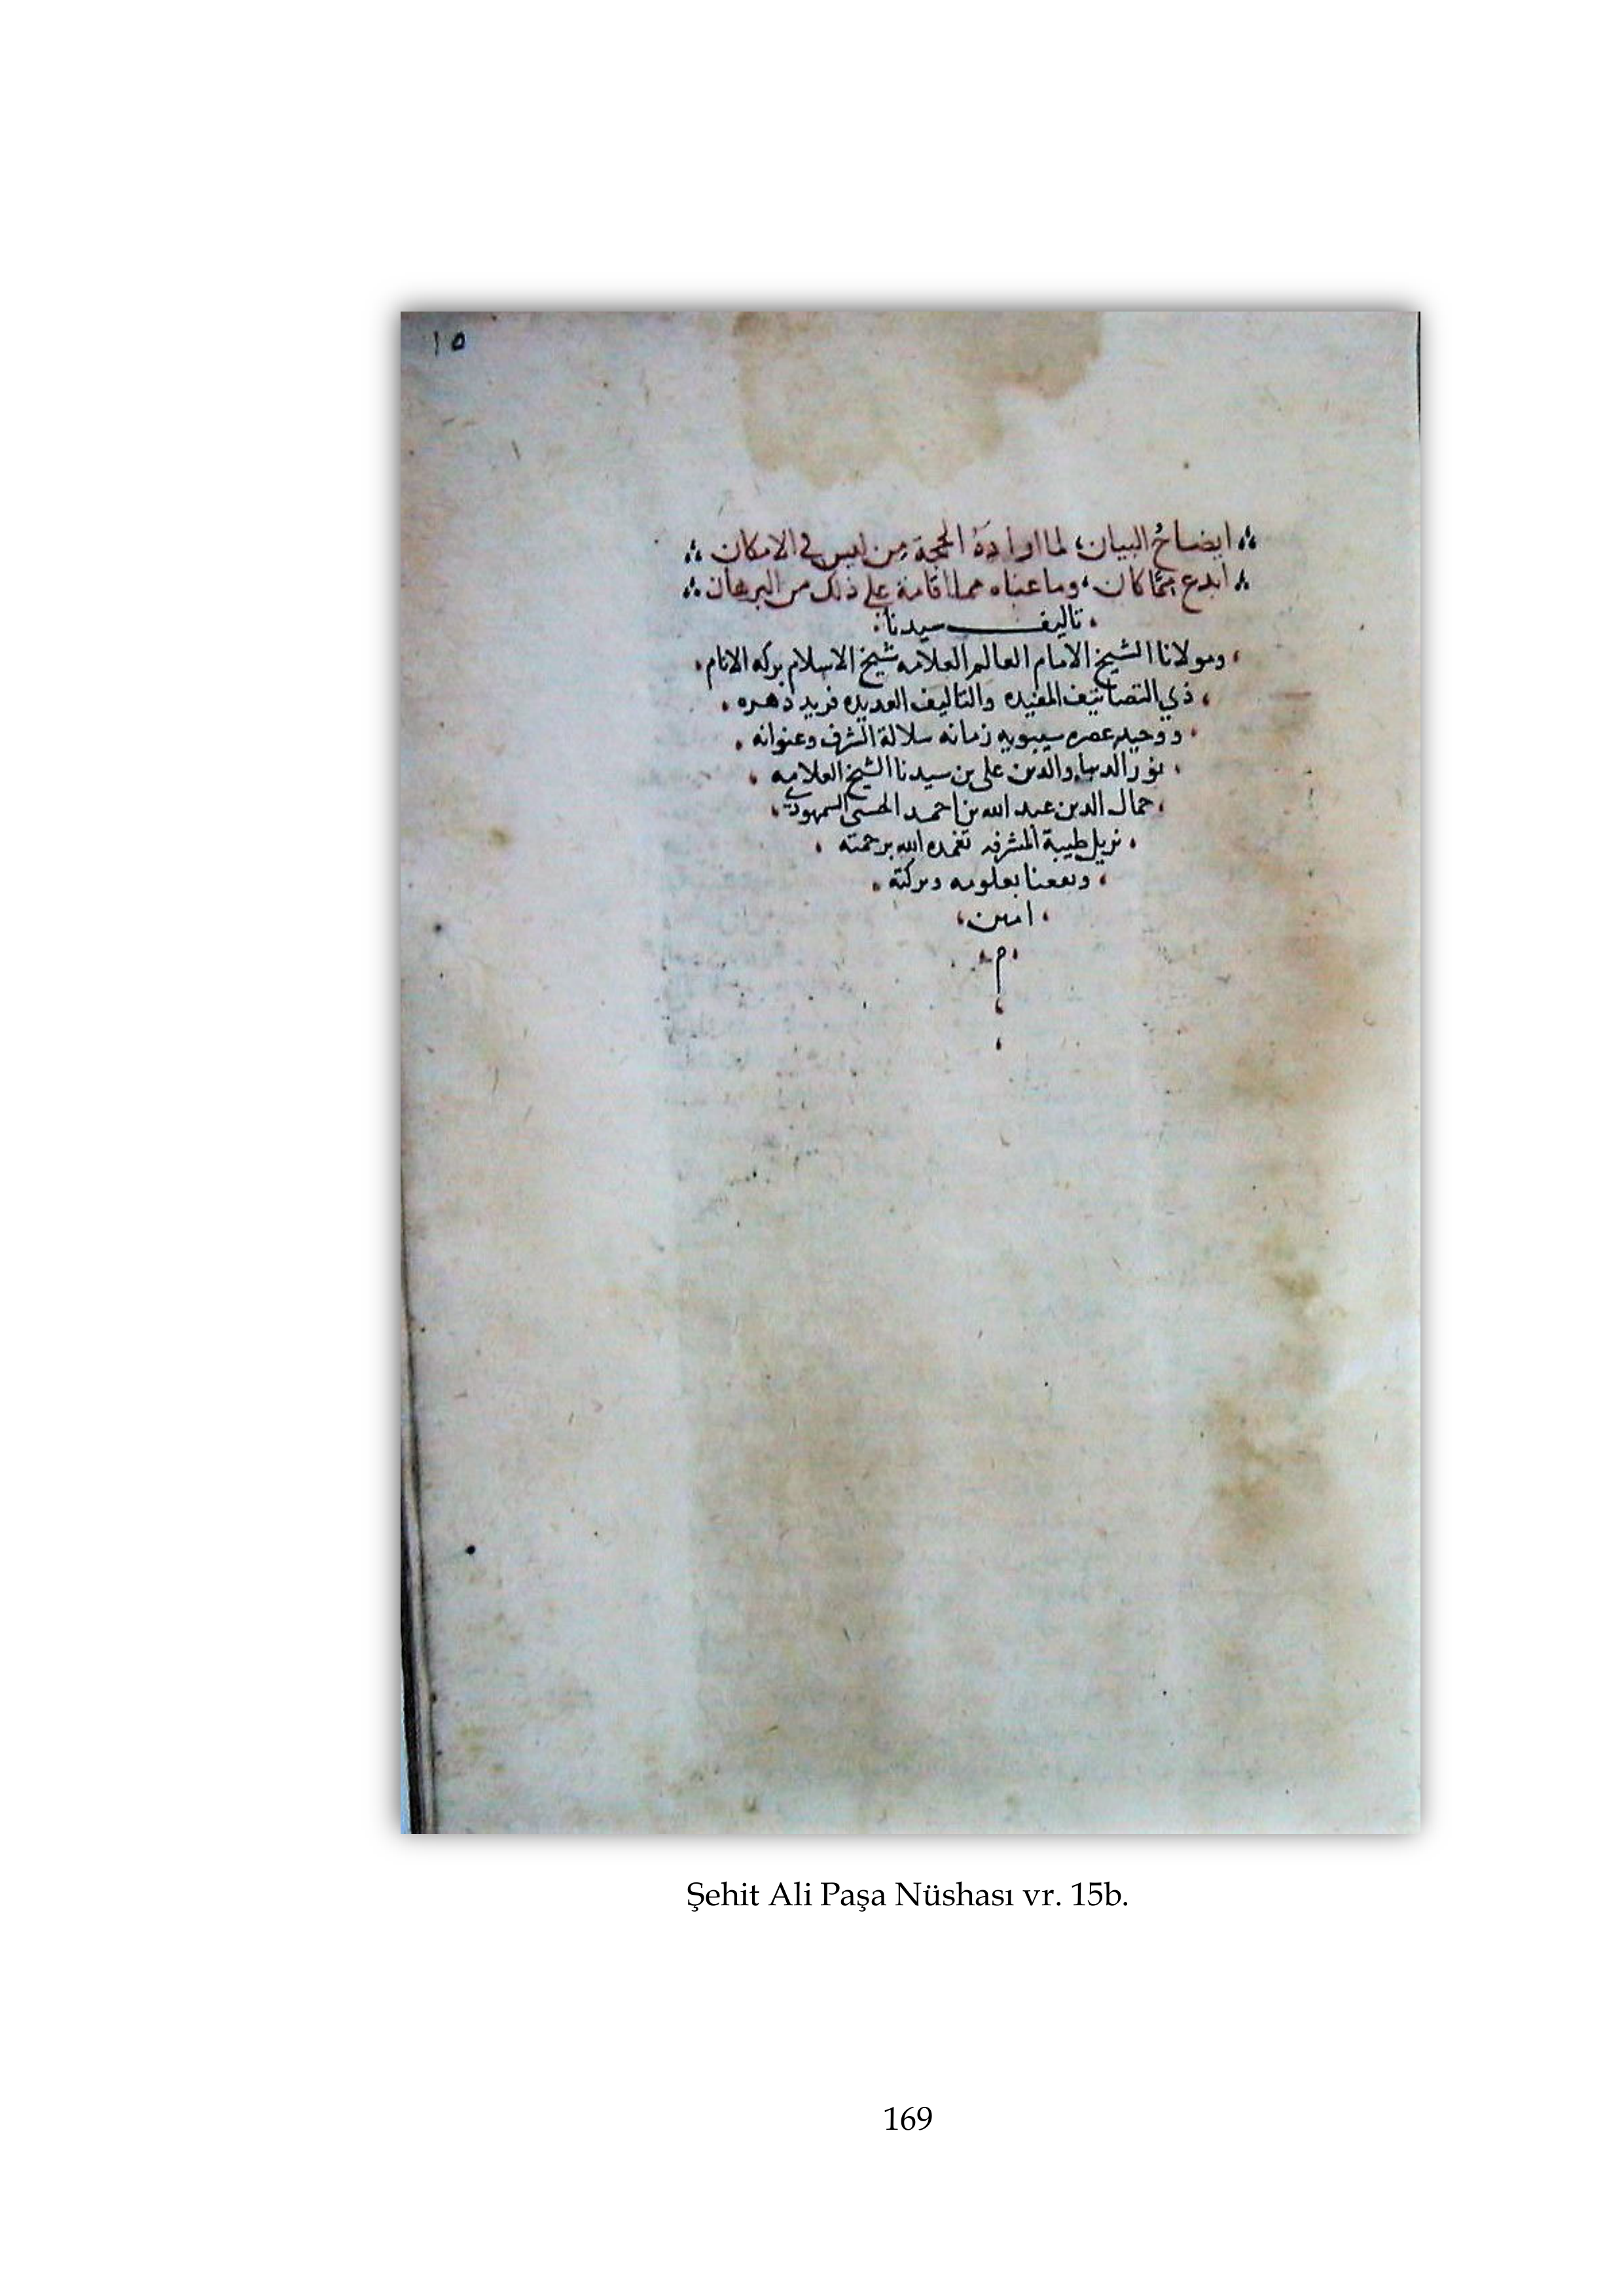 ١٥
ايضاحُ البيان، لما ارادَهُ الحجة من ليس في الامكان
ابدع مِمَّا كان، وما عناه مما اقامه على ذلك من البرهان
تاليف سيدنا
ومولانا الشيخ الامام العالم العلامه شيخ الاسلام بركه الانام
ذي التصانيف المفيده والتاليف العديده فريد دهره
ووحيد عصره سيبويه زمانه سلالة الشرف وعنوانه
نور الدنيا والدين علي بن سيدنا الشيخ العلامه
جمال الدين عبد الله بن احمد الحسني السمهودي
نزيل طيبة المشرفه تغمده الله برحمته
ونفعنا بعلومه وبركته
امين
م
Şehit Ali Paşa Nüshası vr. 15b.
169